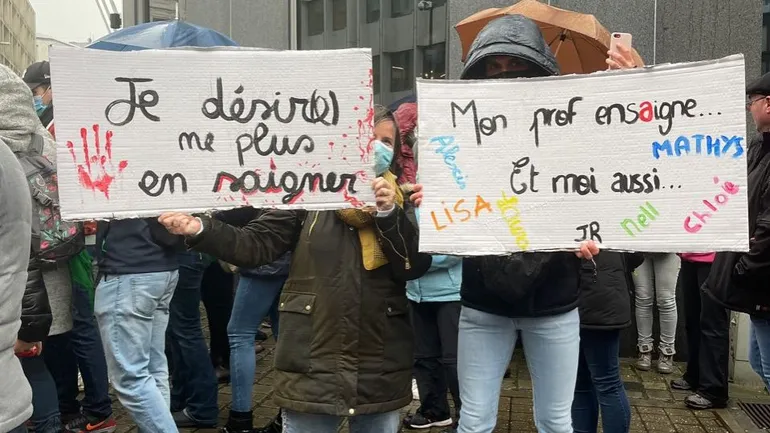 Je désir(e)
ne plus
en saigner
Mon prof ensaigne...
Et moi aussi...
Alexis
MATHYS
LISA
JR
nell
chloé